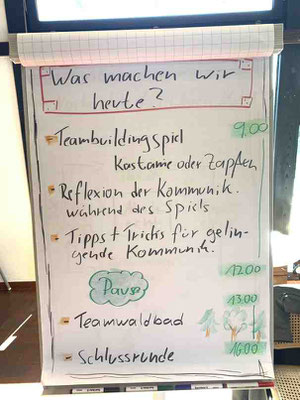 Was machen wir
heute?
Teambuildingspiel 9.00
Kastanie oder Zapfen
Reflexion der Kommunik.
während des Spiels
Tipps + Tricks für gelin-
gende Kommunik.
12.00
Pause
13.00
Teamwaldbad
Schlussrunde 16.00